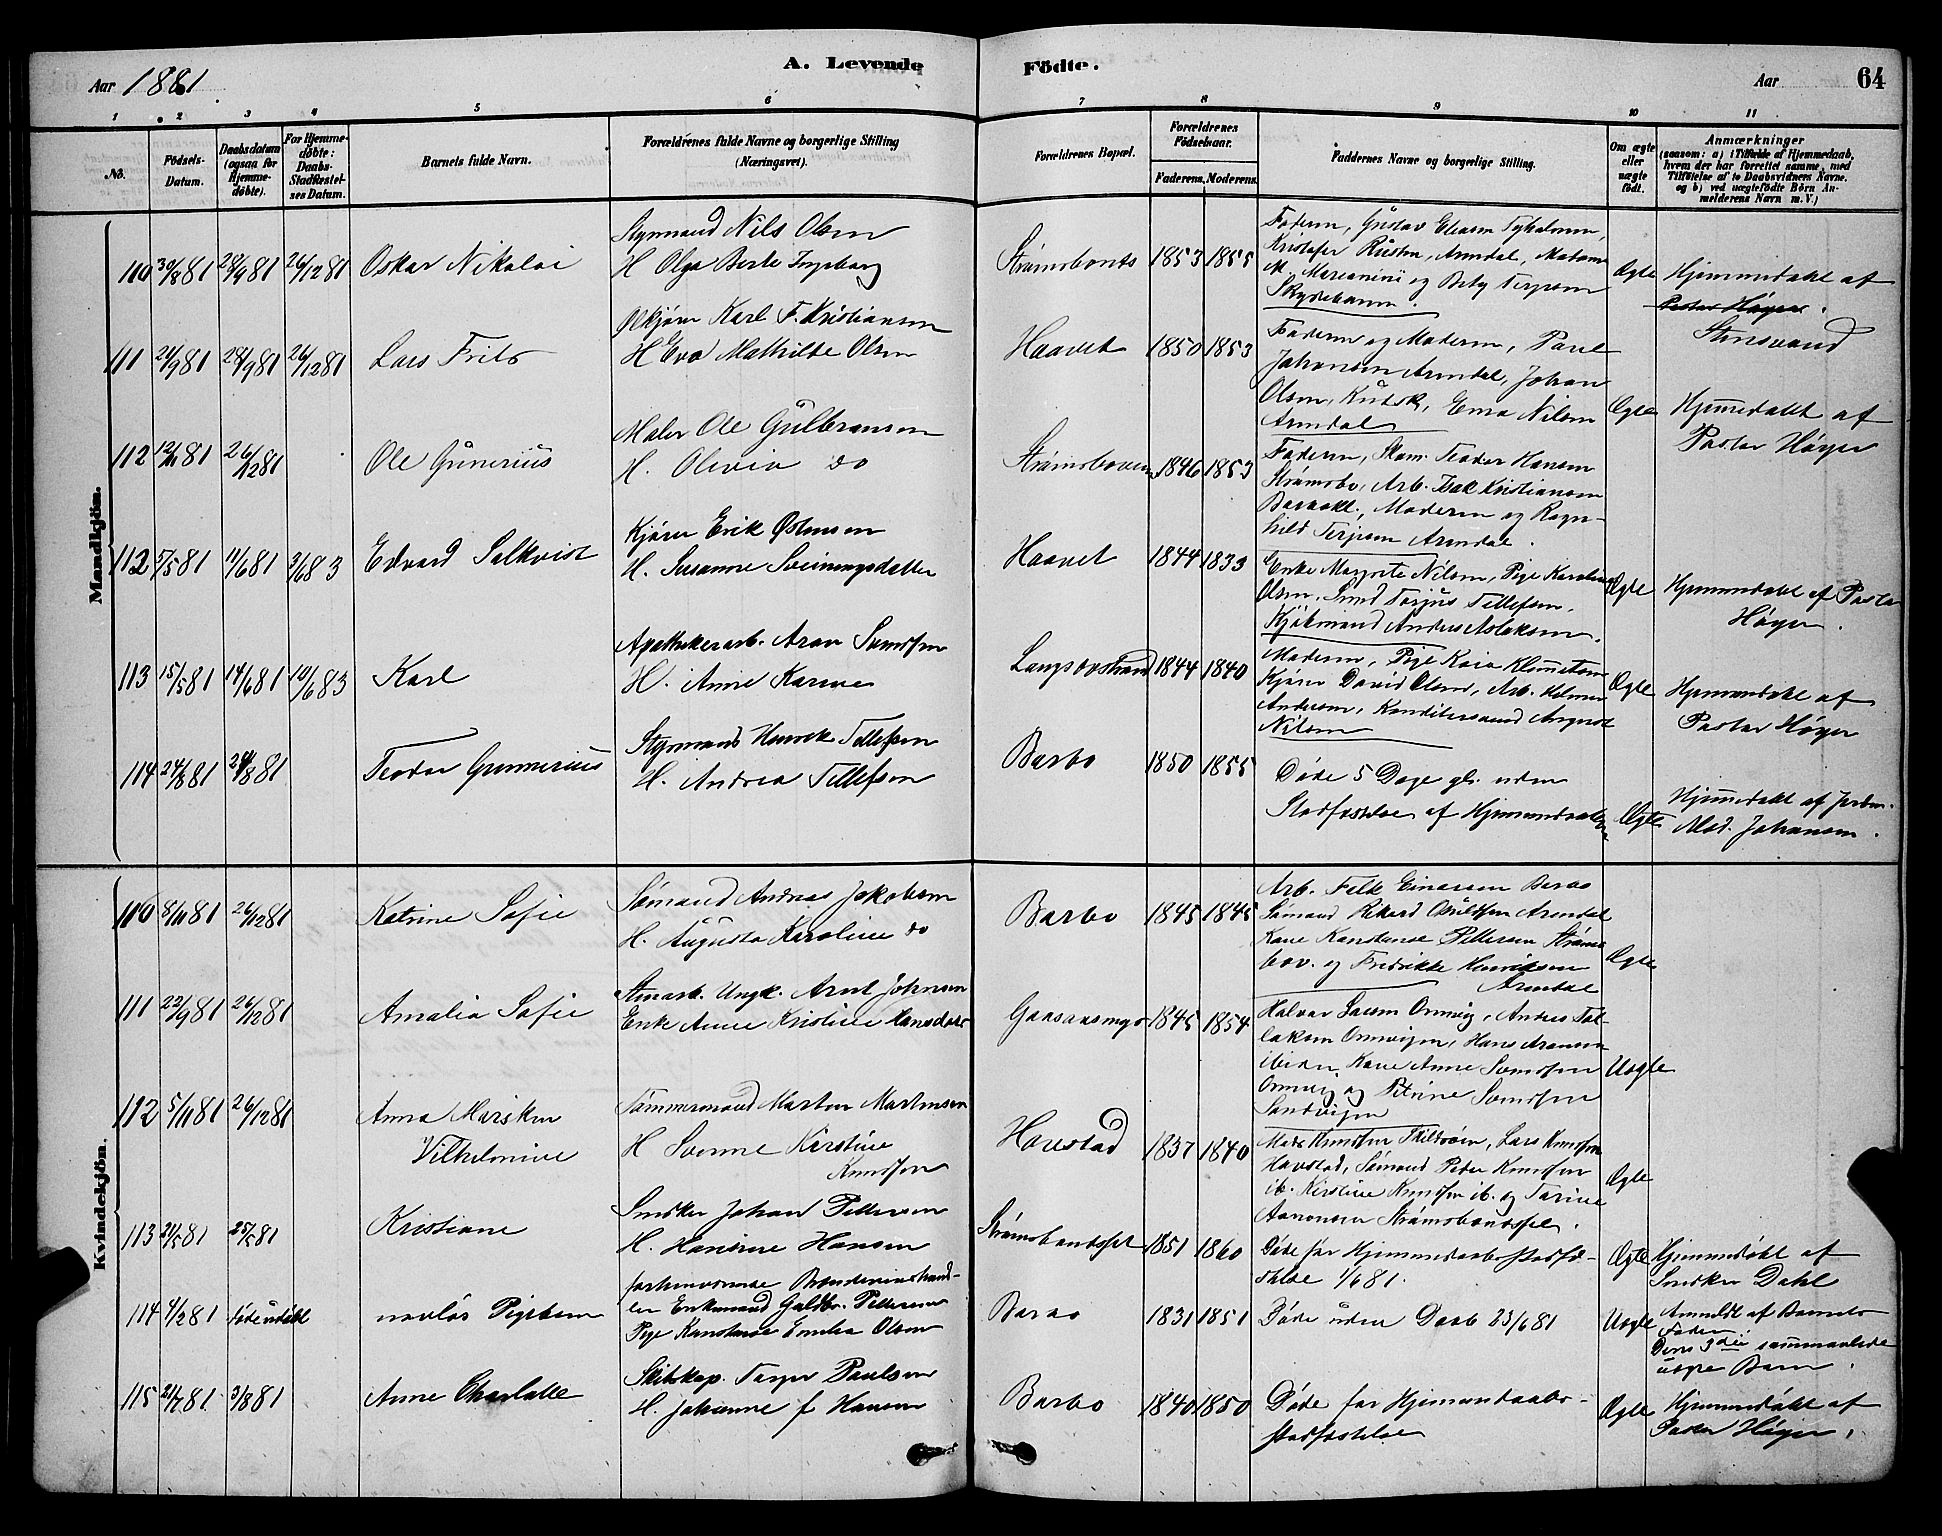 Aar 1881
A. Levende Födte.
Aar 64
1 2 3 4 5 6 7 8 9 10 11
No.
Födsels-Datum.
Daabsdatum (ogsaa for Hjemme-döbte).
For Hjemme-döbte: Daabs-Stadfæstel-ses Datum.
Barnets fulde Navn.
Forældrenes fulde Navne og borgerlige Stilling (Næringsvei).
Forældrenes Bopæl.
Forældrenes Födselsaar.
Faderens. Moderens.
Faddernes Navne og borgerlige Stilling.
Om ægte eller uægte födt.
Anmærkninger
(saasom: a) i Tilfælde af Hjemmedaab, hvem der har forrettet samme, med Tilföielse af to Daabsvidners Navne. og b) ved uægtefödte Börn An-melderens Navn m. V.)
Mandkjön.
110 30/8 81 28/9 81 26/12 81 Oskar Nikolai
Styrmand Nils Olsen
H Olga Berte Ingeborg
Strømsbonts 1853 1855
Faderen, Gustav Eliasen Tyholmen,
Kristofer Rusten, Arendal, Madame
M. Marcanini og Betzy Terjesen
Ægte Hjemmedøbt af
Pastor Høyer.
Stensvand
111 24/9 81 28/9 81 26/12 81 Lars Frits
Ølkjører Karl F. Kristiansen
H Eva Mathilde Olsen
Haavet 1850 1853
Faderen og Moderen, Paul
Johansen Arendal, Johan
Olsen, Kudsk, Ema Nilsen
Arendal
Ægte Hjemmedøbt af
Pastor Høyer
112 12/11 81 26/12 81 Ole Gunerius
Maler Ole Gulbransen
H. Olivia do
Strømsboveien 1846 1853
Faderen, Skom. Teodor Hansen
Strømsbo, Arb. Isak Kristiansen
Barbokl., Moderen og Ragn-
hild Terjesen Arendal.
112 5/5 81 11/6 81 3/6 83 Edvard Salkvist
Kjører Erik Østensen
H. Susanne Sveinungsdatter
Haavet 1844 1833
Enke Margrete Nilsen, Pige Karoline
Olsen, Smed Torjus Tellefsen,
Kjøbmand Anders Aslaksen.
Ægte Hjemmedøbt af Pastor
Høyer.
113 15/5 81 14/6 81 10/6 83 Karl
Apothekerarb. Aron Svendsen
H. Anne Karine
Langsævstrand 1844 1840
Moderen, Pige Kaia Klemetsen
Kjører David Olsen, Arb. Helmer
Andersen, Konditorsvend August
Nilsen
Ægte Hjemmedøbt af
Pastor Høyer
114 24/8 81 28/8 81 Teodor Gunnerius
Styrmand Henrik Tellefsen
H. Andrea Tellefsen
Barbo 1850 1855
Døde 5 Dage gl. uden
Stadfæstelse af Hjemmedaaben
Ægte Hjemmedøbt af Jordm.
Mad. Johansen.
Kvindekjön.
110 8/11 81 26/12 81 Katrine Sofie
Sømand Andreas Jakobsen
H. Augusta Karoline do
Barbo 1845 1845
Arb. Falk Einarsen Barbo
Sømand Rikard Osuldsen Arendal
Kone Konstanse Pettersen Strøms
bov. og Fredrikke Henriksen
Arendal
Ægte
111 22/9 81 26/12 81 Amalia Sofie
Stenarb. Ungk. Arnt Johnsen
Enke Anne Kristine Hansdatter
Gaasaasmyr 1845 1854
Halvor Larsen Omvig, Anders Tal-
laksen Omvigen, Hans Aronsen
ibiden, Kone Anne Svendsen
Omvig og Petrine Svendsen
Sandvigen
Uægte
112 5/11 81 26/12 81 Anna Marsken
Vilhelmine
Tømmermand Morten Mortensen
H Svenne Kirstine
Knudsen
Havstad 1837 1840
Mads Knudsen Skilsøen, Lars Knudsen
Havstad, Sømand Peder Knudsen
ib. Kirstine Knudsen ib. og Tarine
Aanonsen Strømsbontsspel.
Ægte
113 21/5 81 25/5 81 Kristiane
Snedker Johan Pettersen
H. Hansine Hansen
Strømsbontsspel 1851 1860
Døde før Hjemmedaabsstadfæ-
stelse 1/6 81.
Ægte Hjemmedøbt af
Snedker Dahl
114 4/2 81 døde udøbt navnløs Pigebarn
forhenværende Brændevinshand-
ler Enkemand Guldbr. Pettersen
Pige Konstanse Emilia Olsen
Barbo 1831 1851
Døde uden Daab 23/6 81
Uægte Anmeldt af Barnets
Fader
Deres 3die sammenavlede
uægte Barn.
115 21/7 81 3/8 81 Anne Charlotte
Skibskap. Terjer Paulsen
H. Johanne f Hansen
Barbo 1840 1850
Døde før Hjemmedaabs-
stadfæstelse
Ægte Hjemmedøbt af
Pastor Høyer.